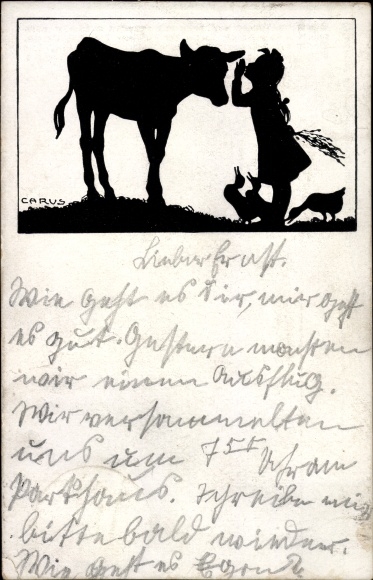 CARUS
Lieber Ernst.
Wie geht es Dir, mir geht
es gut. Gestern machten
wir einen Ausflug.
Wir versammelten
uns um 7 55 Uhr am
Parkhaus. Schreibe mir
bitte bald wieder.
Wie geht es